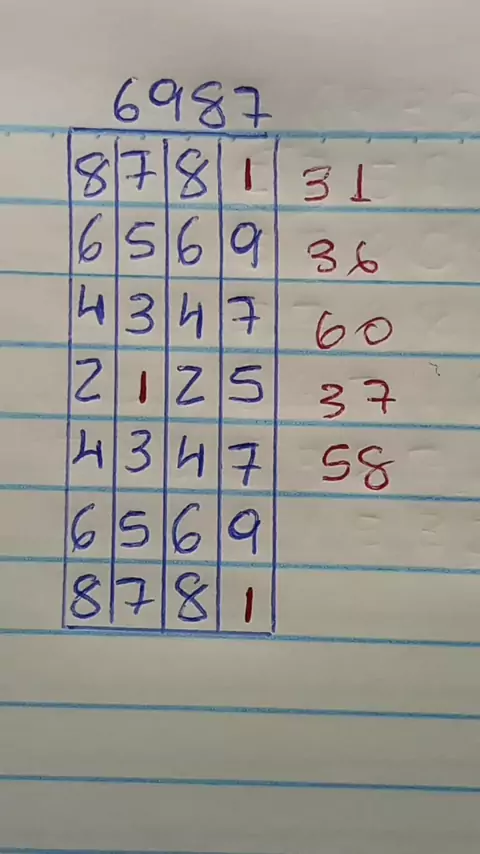 6987
8 7 8 1 31
6 5 6 9 36
4 3 4 7 60
2 1 2 5 37
4 3 4 7 58
6 5 6 9
8 7 8 1